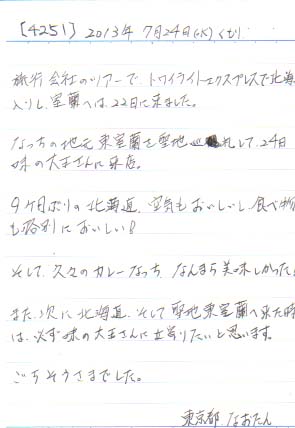 [4251] 2013年 7月24日(水) くもり
旅行会社のツアーで、トワイライトエクスプレスで北海
入りし、室蘭へは、22日に来ました。
なっちの地元 東室蘭を聖地巡礼して、24日
味の大王さんに来店。
9ヶ月ぶりの北海道、空気もおいしいし、食べ物
も格別においしい!
そして、久々のカレーなっち、なんまら美味しかった!
また、次に北海道、そして聖地東室蘭へ来た時
は、必ず味の大王さんに立寄りたいと思います。
ごちそうさまでした。
東京都 なおたん